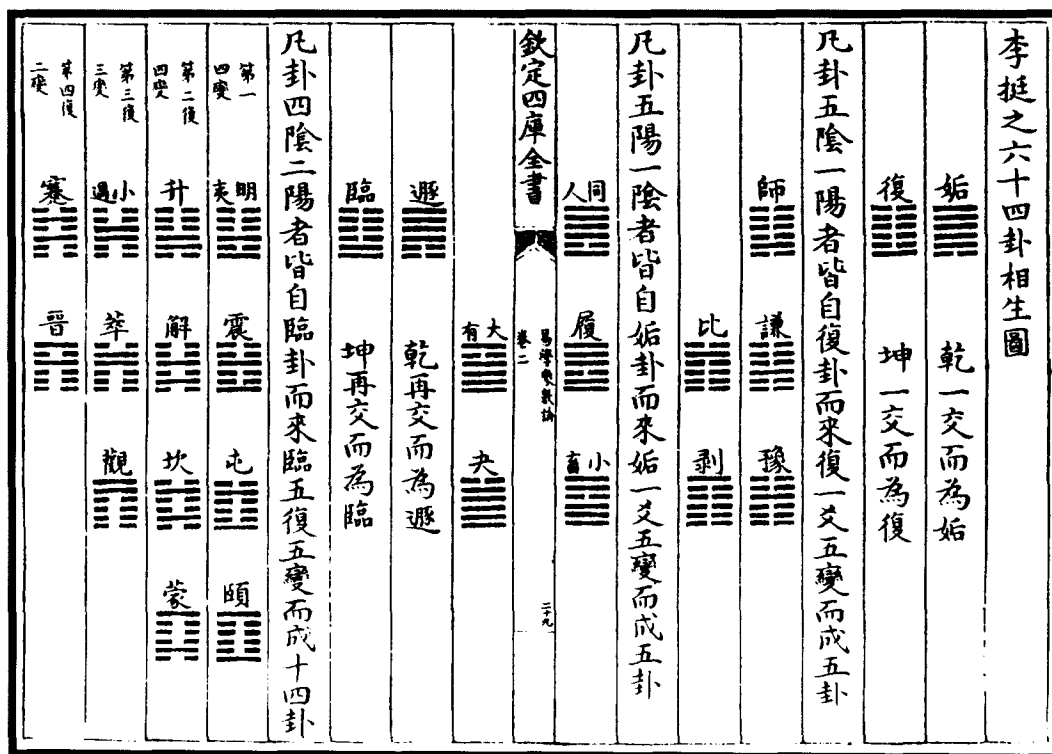 李挺之六十四卦相生圖
姤　乾一交而為姤
復　坤一交而為復
凡卦五陰一陽者皆自復卦而來復一爻五變而成五卦
師　謙　豫
比　剝
凡卦五陽一陰者皆自姤卦而來姤一爻五變而成五卦
同人　履　小畜
欽定四庫全書　易學象數論　卷二　二十九
大有　夬
遯　乾再交而為遯
臨　坤再交而為臨
凡卦四陰二陽者皆自臨卦而來臨五復五變而成十四卦
第一四變　明夷　震　屯　頤
第二復四變　升　解　坎　蒙
第三復三變　小過　萃　觀
第四復二變　蹇　晉